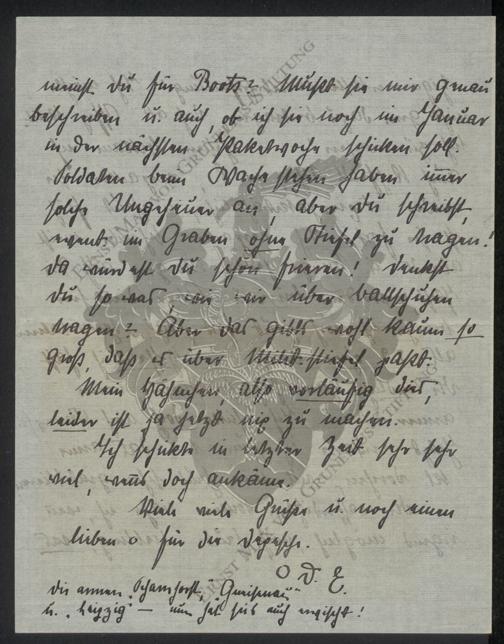 meinst du für Boots? Mußt sie mir genau
beschreiben u. auch, ob ich sie noch im Januar
in der nächsten Paketwoche schicken soll.
Soldaten beim Wache stehen haben immer
solche Ungeheuer an, aber du schreibst,
event. im Graben ohne Stiefel zu tragen!
Da würdest du schön frieren! Denkst
du so was, wie wir über Ballschuhen
tragen? Aber das gibts wohl kaum so
groß, daß es über Milit. stiefel paßt.
Mein Hähnchen, also vorläufig dies,
leider ist ja jetzt nix zu machen.
Ich schickte in letzter Zeit sehr sehr
viel, wenns doch ankäme.
Viele viele Grüße u. noch einen
lieben o für die Depesche.
O D. E.
die armen "Scharnhorst", "Gneisenau"
u. "Leipzig" — nun hat sies auch erwischt!
ERNST MAX VON GRUNELIUS-STIFTUNG